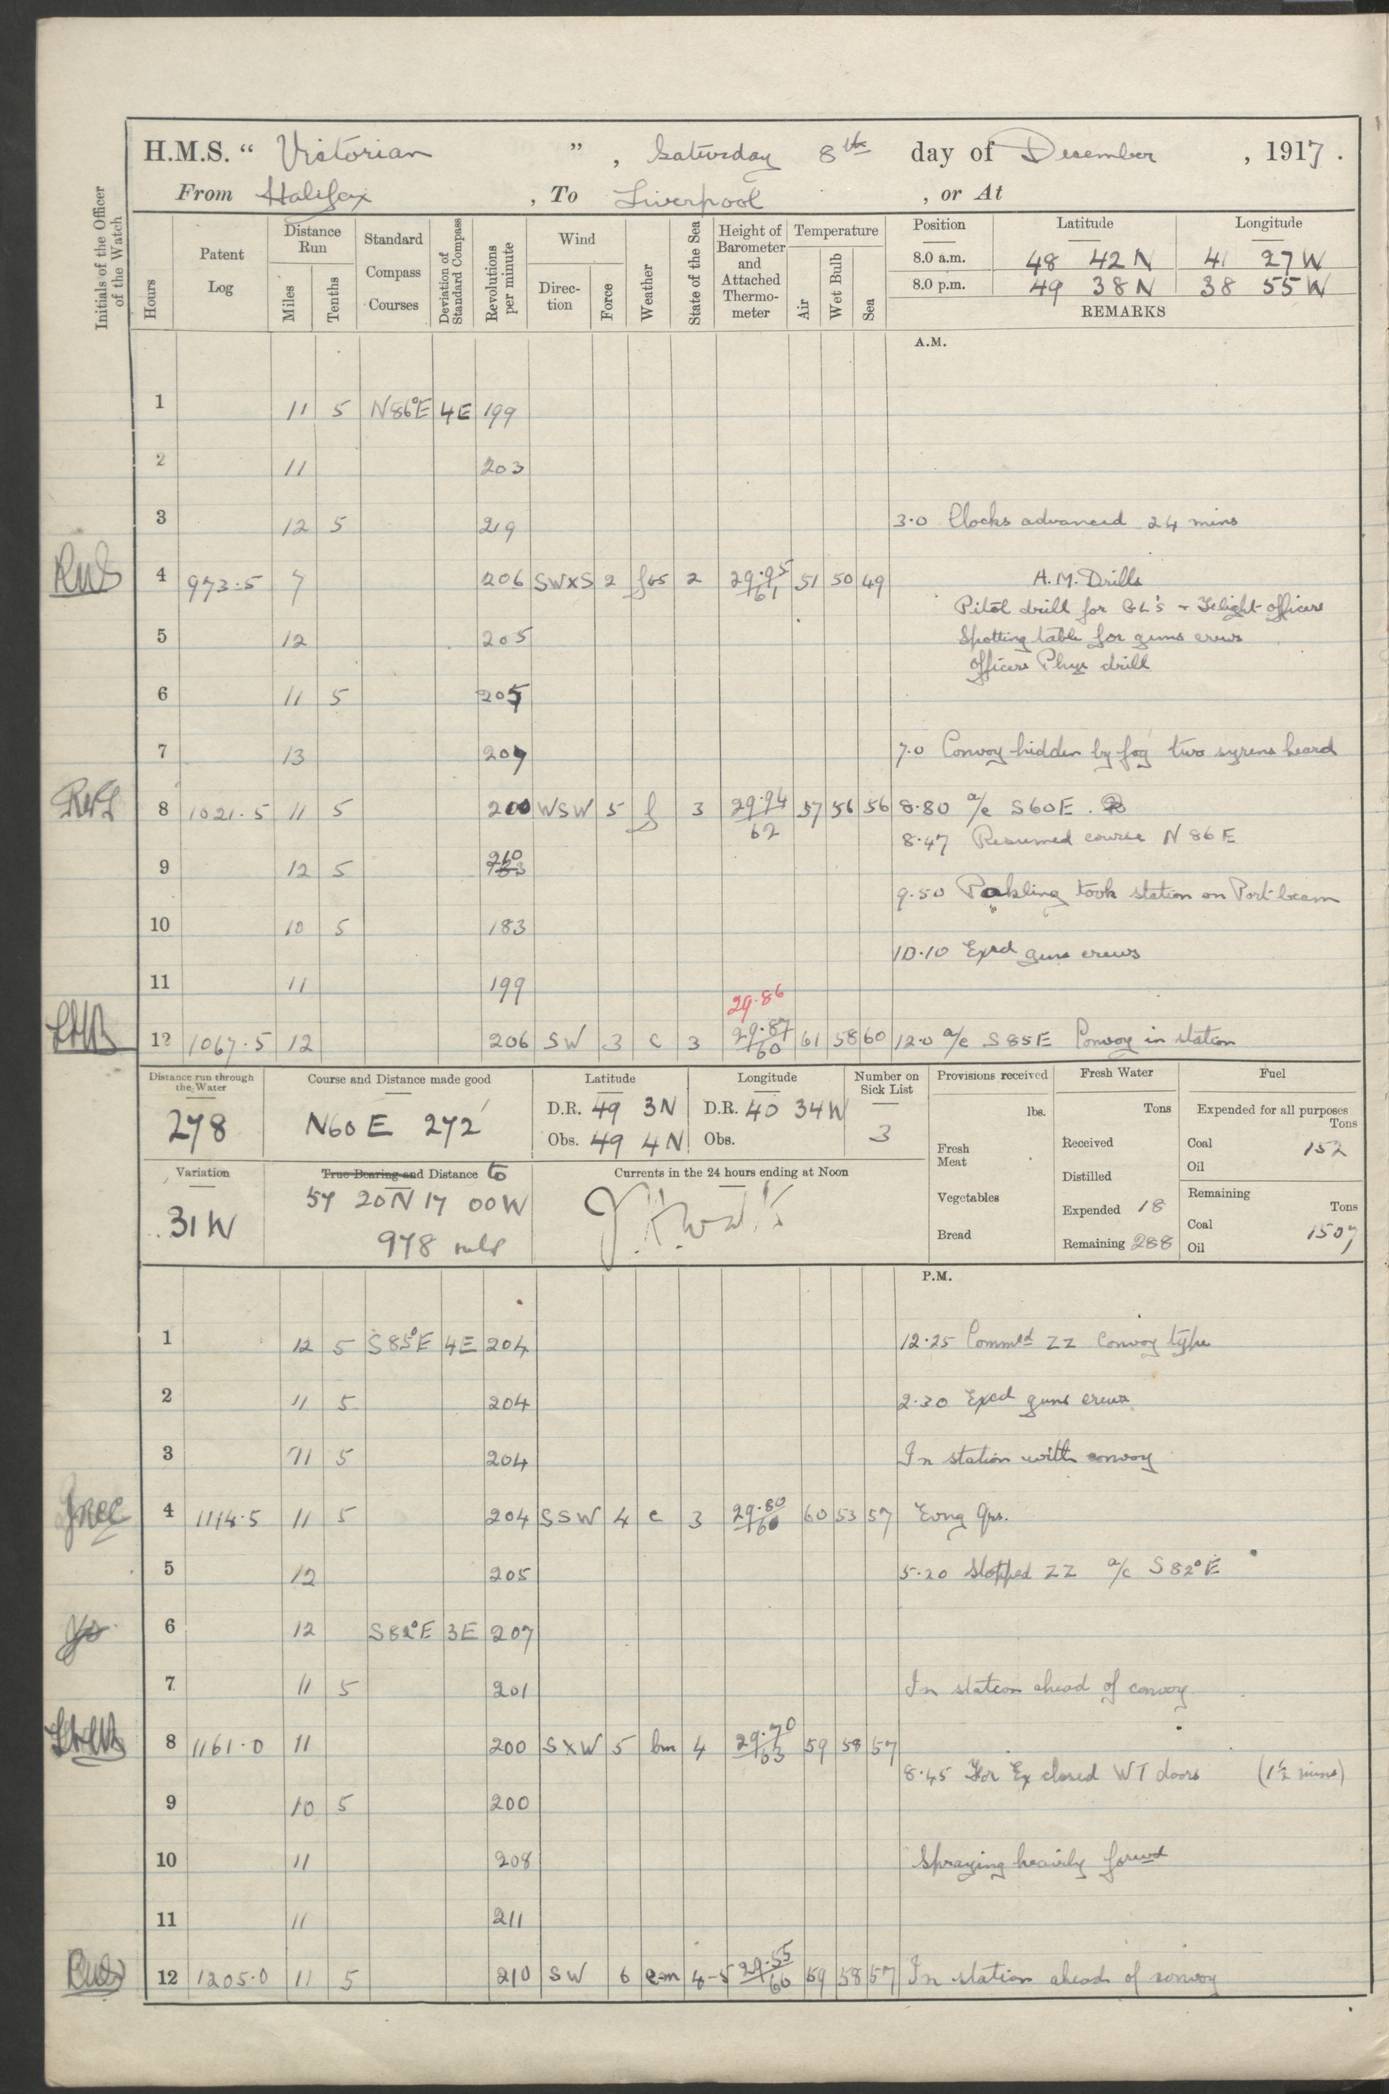 H.M.S. “ Victorian ” , Saturday 8th day of December , 1917 .
From Halifax , To Liverpool , or At
Initials of the Officer of the Watch
Hours
Patent Log
Distance Run
Miles
Tenths
Standard Compass Courses
Deviation of Standard Compass
Revolutions per minute
Wind
Direction
Force
Weather
State of the Sea
Height of Barometer and Attached Thermometer
Temperature
Air
Wet Bulb
Sea
Position Latitude Longitude
8.0 a.m. 48 42 N 41 27 W
8.0 p.m. 49 38 N 38 55 W
REMARKS
A.M.
1 11 5 N86°E 4E 199
2 11 203
3 12 5 219 3·0 Clocks advanced 24 mins
4 973·5 7 206 SWXS 2 2 29·95 61 51 50 49 A.M. Drills
Pitol drill for GL's + officers
5 12 205 Spotting table for guns crews
Officers Phys drill
6 11 5 205
7 13 207 7·0 Convoy hidden by fog two syrens heard
8 1021·5 11 5 200 WSW 5 f 3 29·94 62 57 56 56 8·30 a/c S60E.
8·47 Resumed course N 86 E
9 12 5 210
9·50 took station on Port beam
10 10 5 183
10·10 Exed guns crews
11 11 199
29·86
12 1067·5 12 206 SW 3 c 3 29·87 60 61 58 60 12·0 a/c S85E Convoy in station
Distance run through the Water
278
Course and Distance made good
N60E 272'
Latitude
D.R. 49 3N
Obs. 49 4N
Longitude
D.R. 40 34W
Obs.
Number on Sick List
3
Provisions received
lbs.
Fresh Meat
Vegetables
Bread
Fresh Water
Tons
Received
Distilled
Expended 18
Remaining 288
Fuel
Expended for all purposes
Tons
Coal 152
Oil
Remaining
Tons
Coal 1507
Oil
Variation
31W
True Bearing and Distance to
57 20N 17 00W
978 mls
Currents in the 24 hours ending at Noon
P.M.
1 12 5 S85°E 4E 204 12·25 Commed ZZ Convoy type
2 11 5 204 2·30 Exed guns crews
3 11 5 204 In station with convoy
4 1114·5 11 5 204 SSW 4 c 3 29·80 60 60 53 57 Evng Qrs.
5 12 205 5·20 Stopped ZZ a/c S82°E
6 12 S82°E 3E 207
7 11 5 201 In station ahead of convoy
8 1161·0 11 200 SXW 5 bm 4 29·70 63 59 58 57
8·45 For Ex closed WT doors (1½ mins)
9 10 5 200
10 11 208 Spraying heavily forwd
11 11 211
12 1205·0 11 5 210 SW 6 4-5 29·55 60 59 58 57 In station ahead of convoy